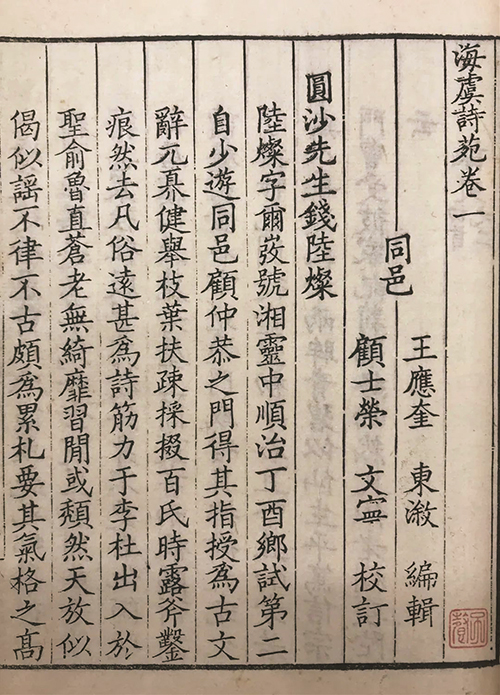 海虞詩苑卷一
王應奎 東漵 編輯
同邑
顧士榮 文寧 校訂
圓沙先生錢陸燦
陸燦字爾弢號湘靈中順治丁酉鄉試第二
自少遊同邑顧仲恭之門得其指授爲古文
辭元健舉枝葉扶疎採掇百氏時露斧鑿
痕然去凡俗遠甚爲詩筋力于李杜出入於
聖俞魯直蒼老無綺靡習閒或頽然天放似
偈似謡不律不古頗爲累札要其氣格之髙